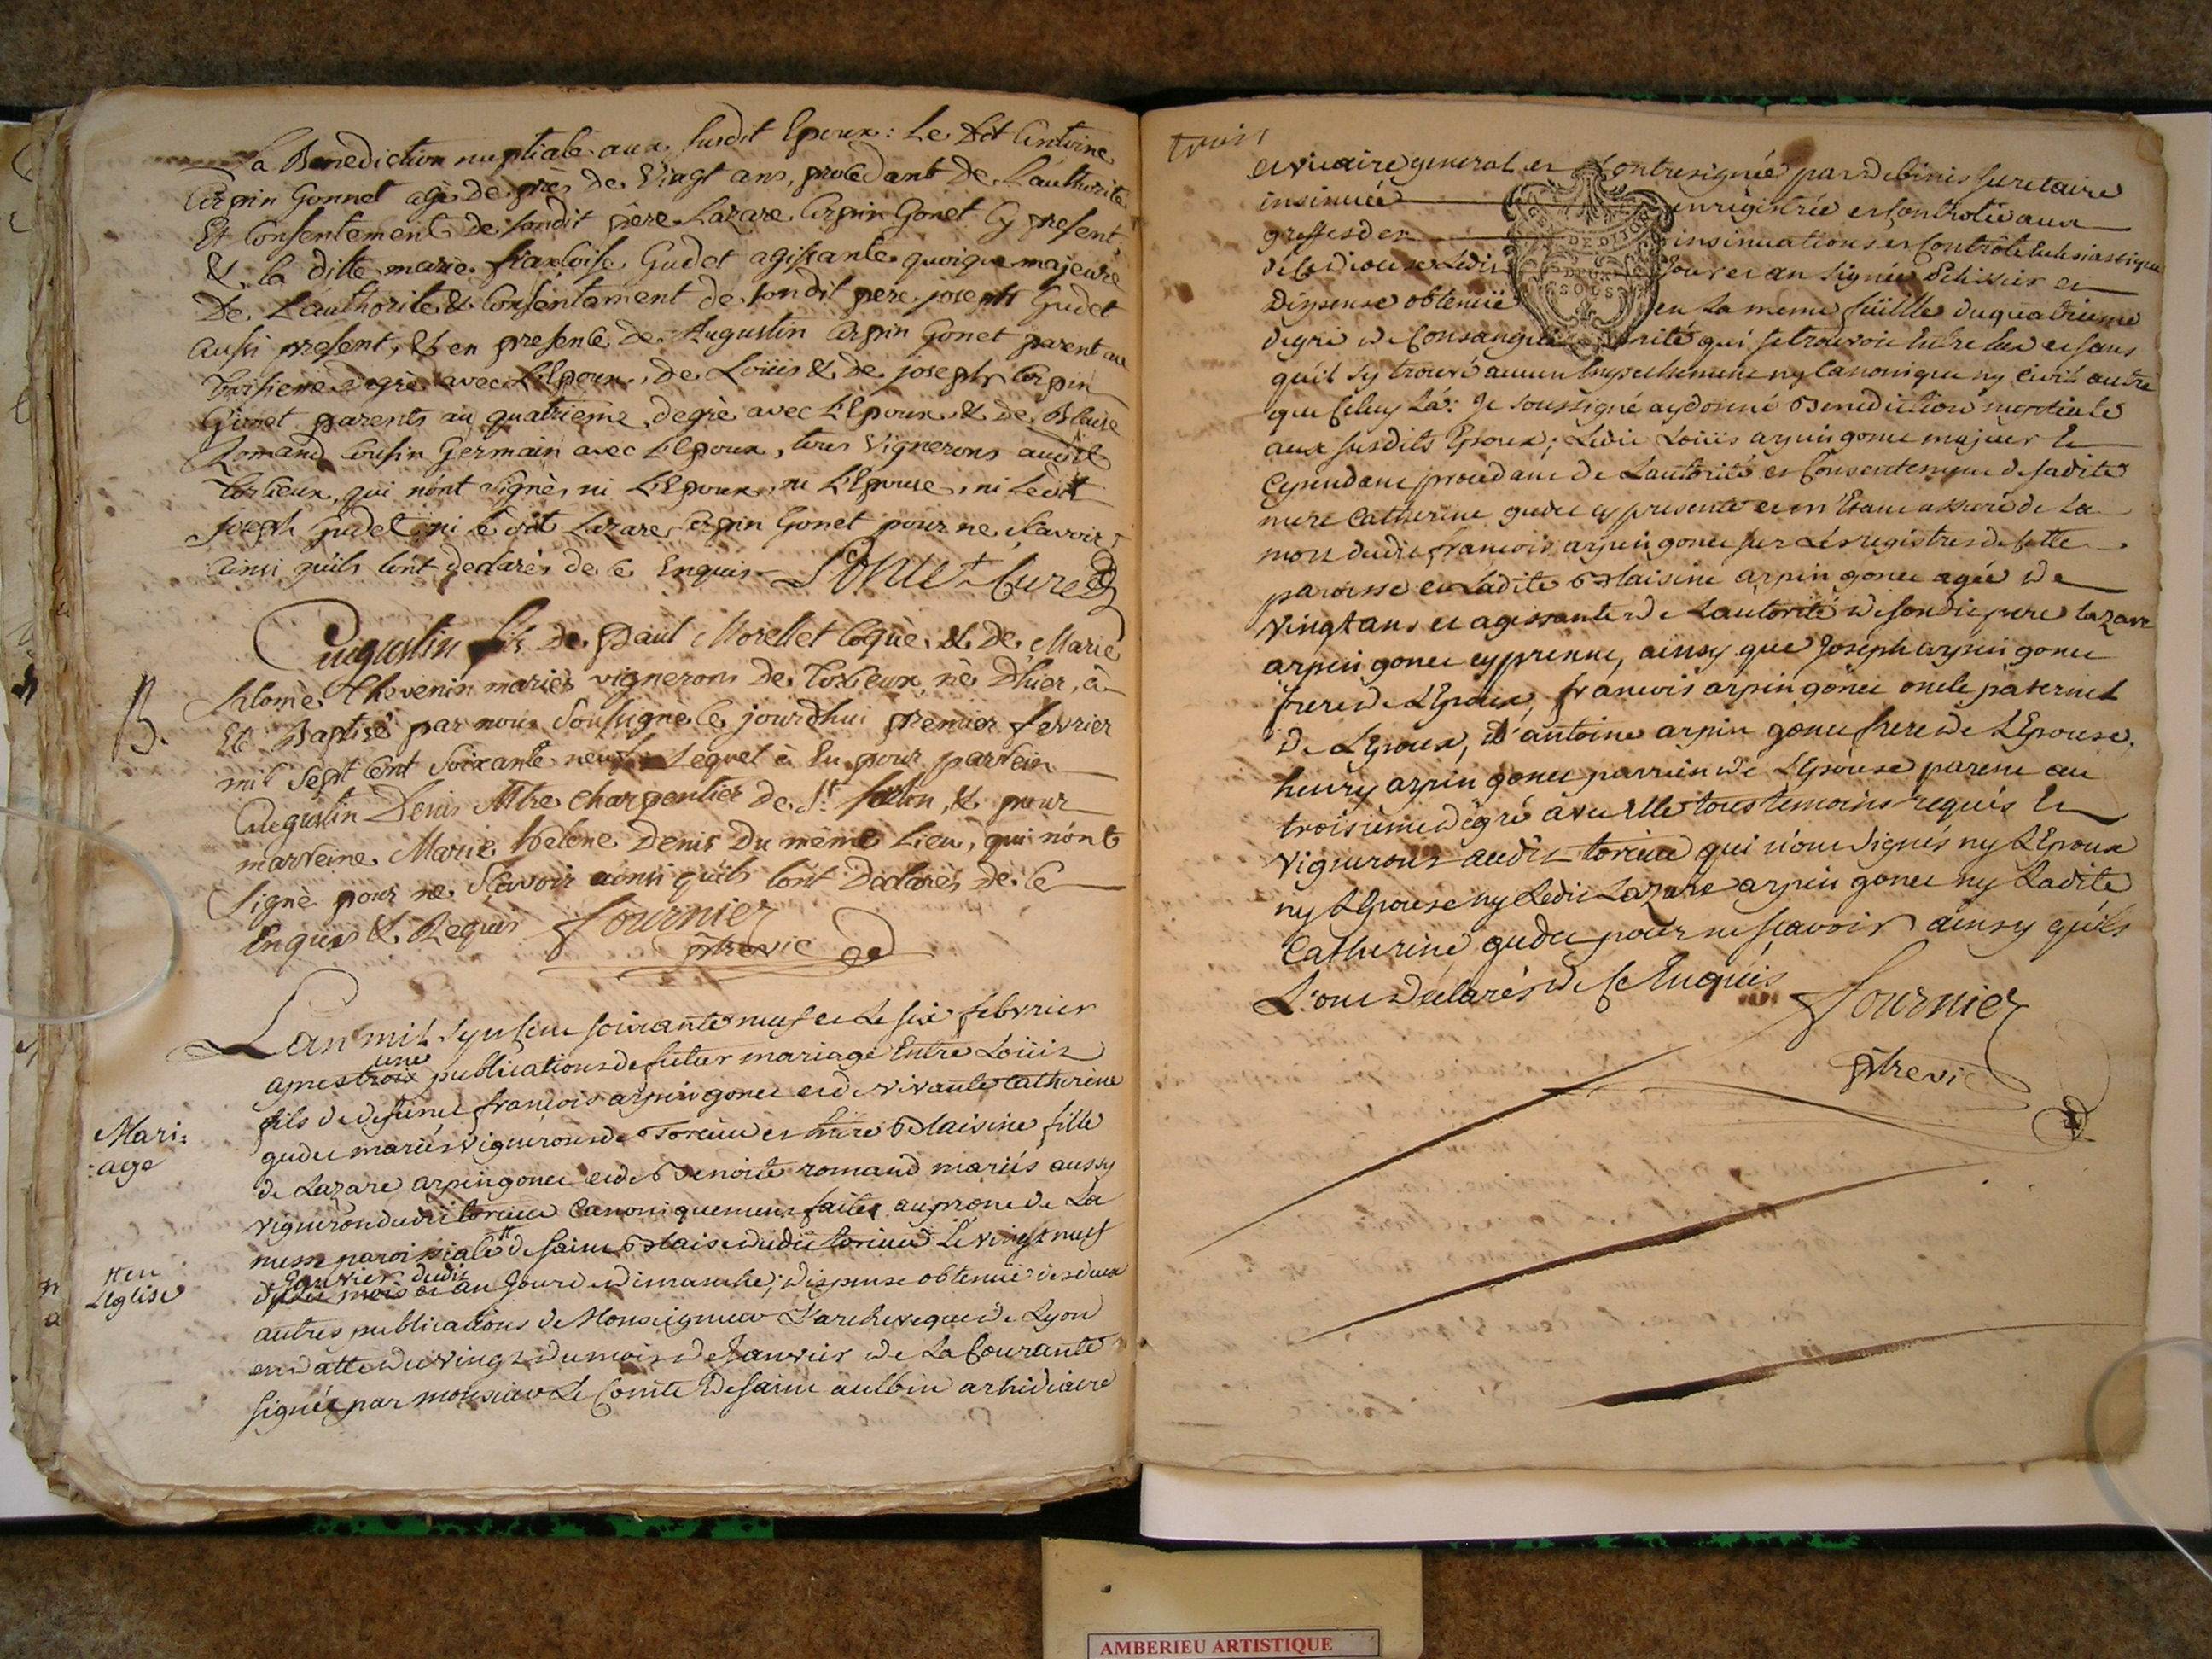 la Benediction nuptiale aux susdit Epoux: Le dit Antoine
Arpin Gonnet agé de près de vingt ans, procedant de l'authorité
Et Consentement de sondit père Lazare Arpin Gonet Cy present,
& la ditte marie francoise Gudet agissante quoique majeure
De L'authorité & Consentement de sondit pere joseph Gudet
aussi present, & en presence de Augustin arpin Gonet parent au
troisieme degré avec L'Epoux, de Loüis & de joseph arpin
Gonet parents au quatrieme degré avec L'Epoux & de Blaise
Romand Cousin Germain avec L'Epoux, tous Vignerons audit
torcieux, qui n'ont signés ni L'Epoux, ni L'Epouse, ni Ledit
joseph Gudet, ni le dit Lazare arpin Gonet pour ne sçavoir
ainsi qu'ils l'ont declarés de ce Enquis Curé
Augustin fils de Paul Morellet Coguè & de Marie
Salomè Thevenin mariés vignerons de Torcieux, nè D'hier, à
B.
Eté Baptisé par nous Soussignè ce jourdhui premier fevrier
mil Sept Cent Soixante neuf, Lequel à Eu pour parrein
Augustin Denis Mtre charpentier de St. & pour
marreine Marie helene Denis du même Lieu, qui n'ont
Signè pour ne Sçavoir ainsi qu'ils l'ont Declarés de ce
Enquis & Requis Fournier
ptre vic
L'an mil sept cent soixante neuf et Le six febvrier
une
apres trois publications de futur mariage Entre Loüis
fils de defunct francois arpin gonet et de vivante Catherine
Mari=
=age
gudet mariés vignerons de Torcieu et Entre Blaisine fille
de Lazare arpin gonet et de Benoite romand mariés aussy
vigneron dudit torcieu Canoniquement faites au prone de La
messe paroissiale de saint Blaise dudit torcieu Le vingt neuf
# en
L'église
janvier dudit
dudit mois et an Jour de Dimanche; dispense obtenuë des deux
autres publications de Monseigneur L'archeveque de Lyon
en datte du vingt du mois de Janvier de La Courante
signée par monsieur Le Comte de saint aulbin archidiacre
trois
et vicaire general et Contresignée par secretaire
insinuée enregistrée et Controllée aux
greffes des insinuations et Controle Ecclesiastique
DE DIJON
DEUX
SOUS
de Ce diocese Ledit Jour et an signée et
Dispense obtenuë en La meme feüille du quatrieme
degré de Consanguinité qui se trouvoit Entre Eux et sans
qu'il s'y trouvé aucun Empechement ny Canonique ny Civil autre
que Celuy Là: Je Soussigné ay donné Benediction nuptiale
aux susdits Epoux; Ledit Loüis arpin gonet majeur Et
Cependant procedant de L'autorité et Consentement de sadite
mere Catherine gudet cy presente et m'Etant assuré de La
mort dudit francois arpin gonet sur Les registres de Cette
paroisse et Ladite Blaisine arpin gonet agée de
vingt ans et agissante de L'autorité de sondit pere lazare
arpin gonet cy present, ainsy que Joseph arpin gonet
frere de L'Epoux, francois arpin gonet oncle paternel
de L'Epoux, d'antoine arpin gonet frere de L'Epouse,
henry arpin gonet parrein de L'Epouse parent au
troisième degré avec Elle tous temoins requis Et
vignerons audit torcieu qui n'ont signés ny L'Epoux
ny L'Epouse ny Ledit Lazare arpin gonet ny Ladite
Catherine gudet pour ne sçavoir ainsy qu'ils
L'ont declarés de Ce Enquis
Fournier
ptre vic
AMBERIEU ARTISTIQUE